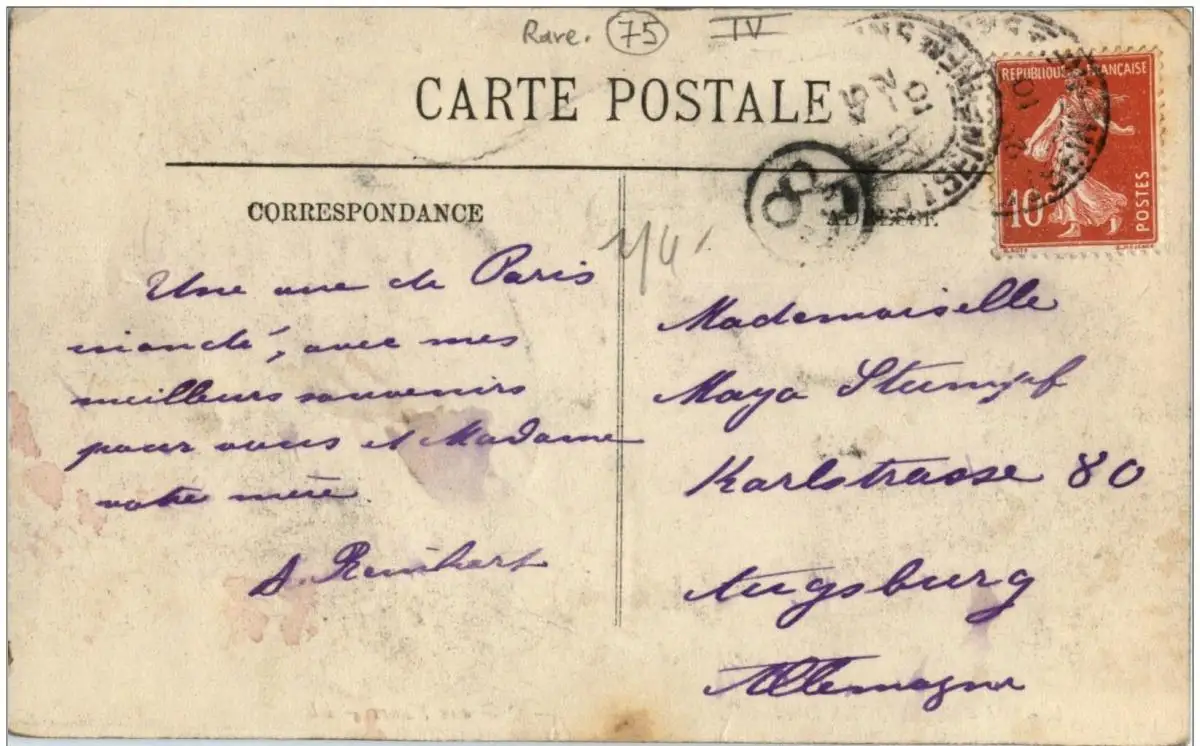 Rare. 75 IV
CARTE POSTALE
RÉPUBLIQUE FRANÇAISE
10
POSTES
CORRESPONDANCE
Une vue de Paris
inondé, avec mes
meilleurs souvenirs
pour vous et Madame
votre mère
Mademoiselle
Maya Stumpf
Karlstrasse 80
Augsburg
Allemagne